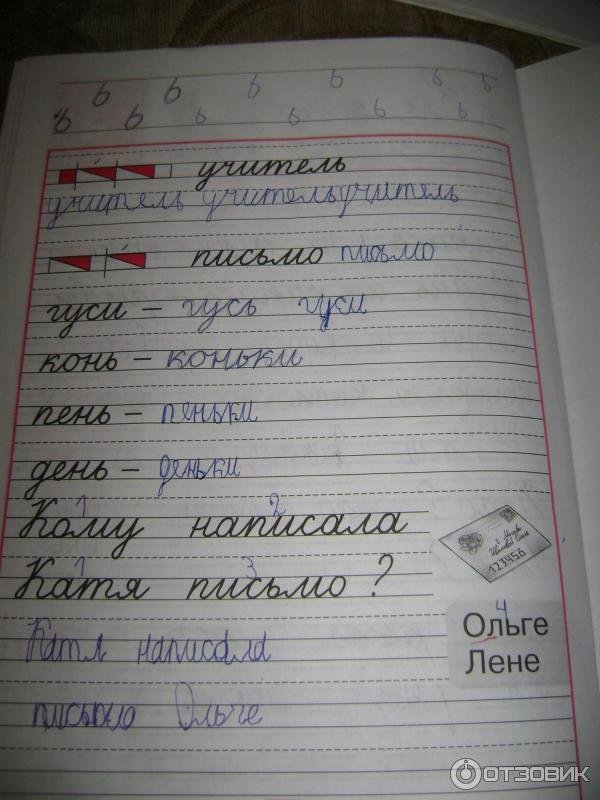 ь ь ь ь ь ь ь
ь ь ь ь ь ь ь
учитель
учитель учитель учитель
письмо письмо
гуси – гусь гуси
конь – коньки
пень – пеньки
день – деньки
1 2
Кому написала
1 3
Катя письмо ?
123456
4
Ольге
Лене
Катя написала
письмо Ольге
ОТЗОВИК